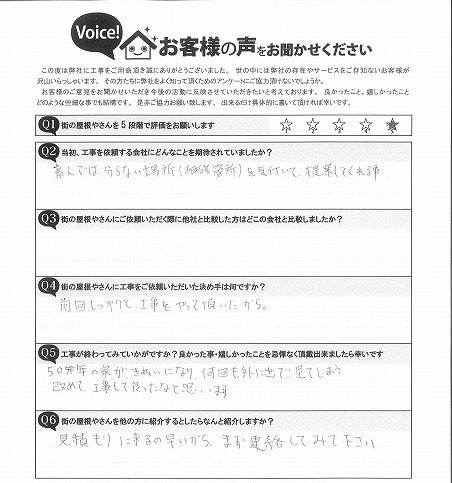 Voice!
お客様の声をお聞かせください
この度は弊社に工事をご用命頂き誠にありがとうございました。 世の中には弊社の存在やサービスをご存知ないお客様が
沢山いらっしゃいます。 その方たちに弊社をよく知って頂くためのアンケートにご協力頂けないでしょうか。
お客様のご意見をお聞かせいただき今後の活動に反映させていただきたいと考えております。 良かったこと、嬉しかったこと
どのような些細な事でも結構です。 是非ご協力お願い致します。 出来るだけ具体的に書いて頂ければ幸いです。
Q1 街の屋根やさんを5段階で評価をお願いします ☆ ☆ ☆ ☆ ★
Q2 当初、工事を依頼する会社にどんなことを期待されていましたか?
素人では分らない場所(補修箇所)を気付いて、提案してくれる事
Q3 街の屋根やさんにご依頼いただく際に他社と比較した方はどこの会社と比較しましたか?
Q4 街の屋根やさんに工事をご依頼いただいた決め手は何ですか?
前回しっかりと、工事をやって頂いたから。
Q5 工事が終わってみていかがですか?良かった事・嬉しかったことを忌憚なく頂戴出来ましたら幸いです
50年の家がきれいになり、何回も外に出て見てしまう
改めて、工事して良ったなと思います
Q6 街の屋根やさんを他の方に紹介するとしたらなんと紹介しますか?
見積もりに来るの早いから、まず電話してみて下さい